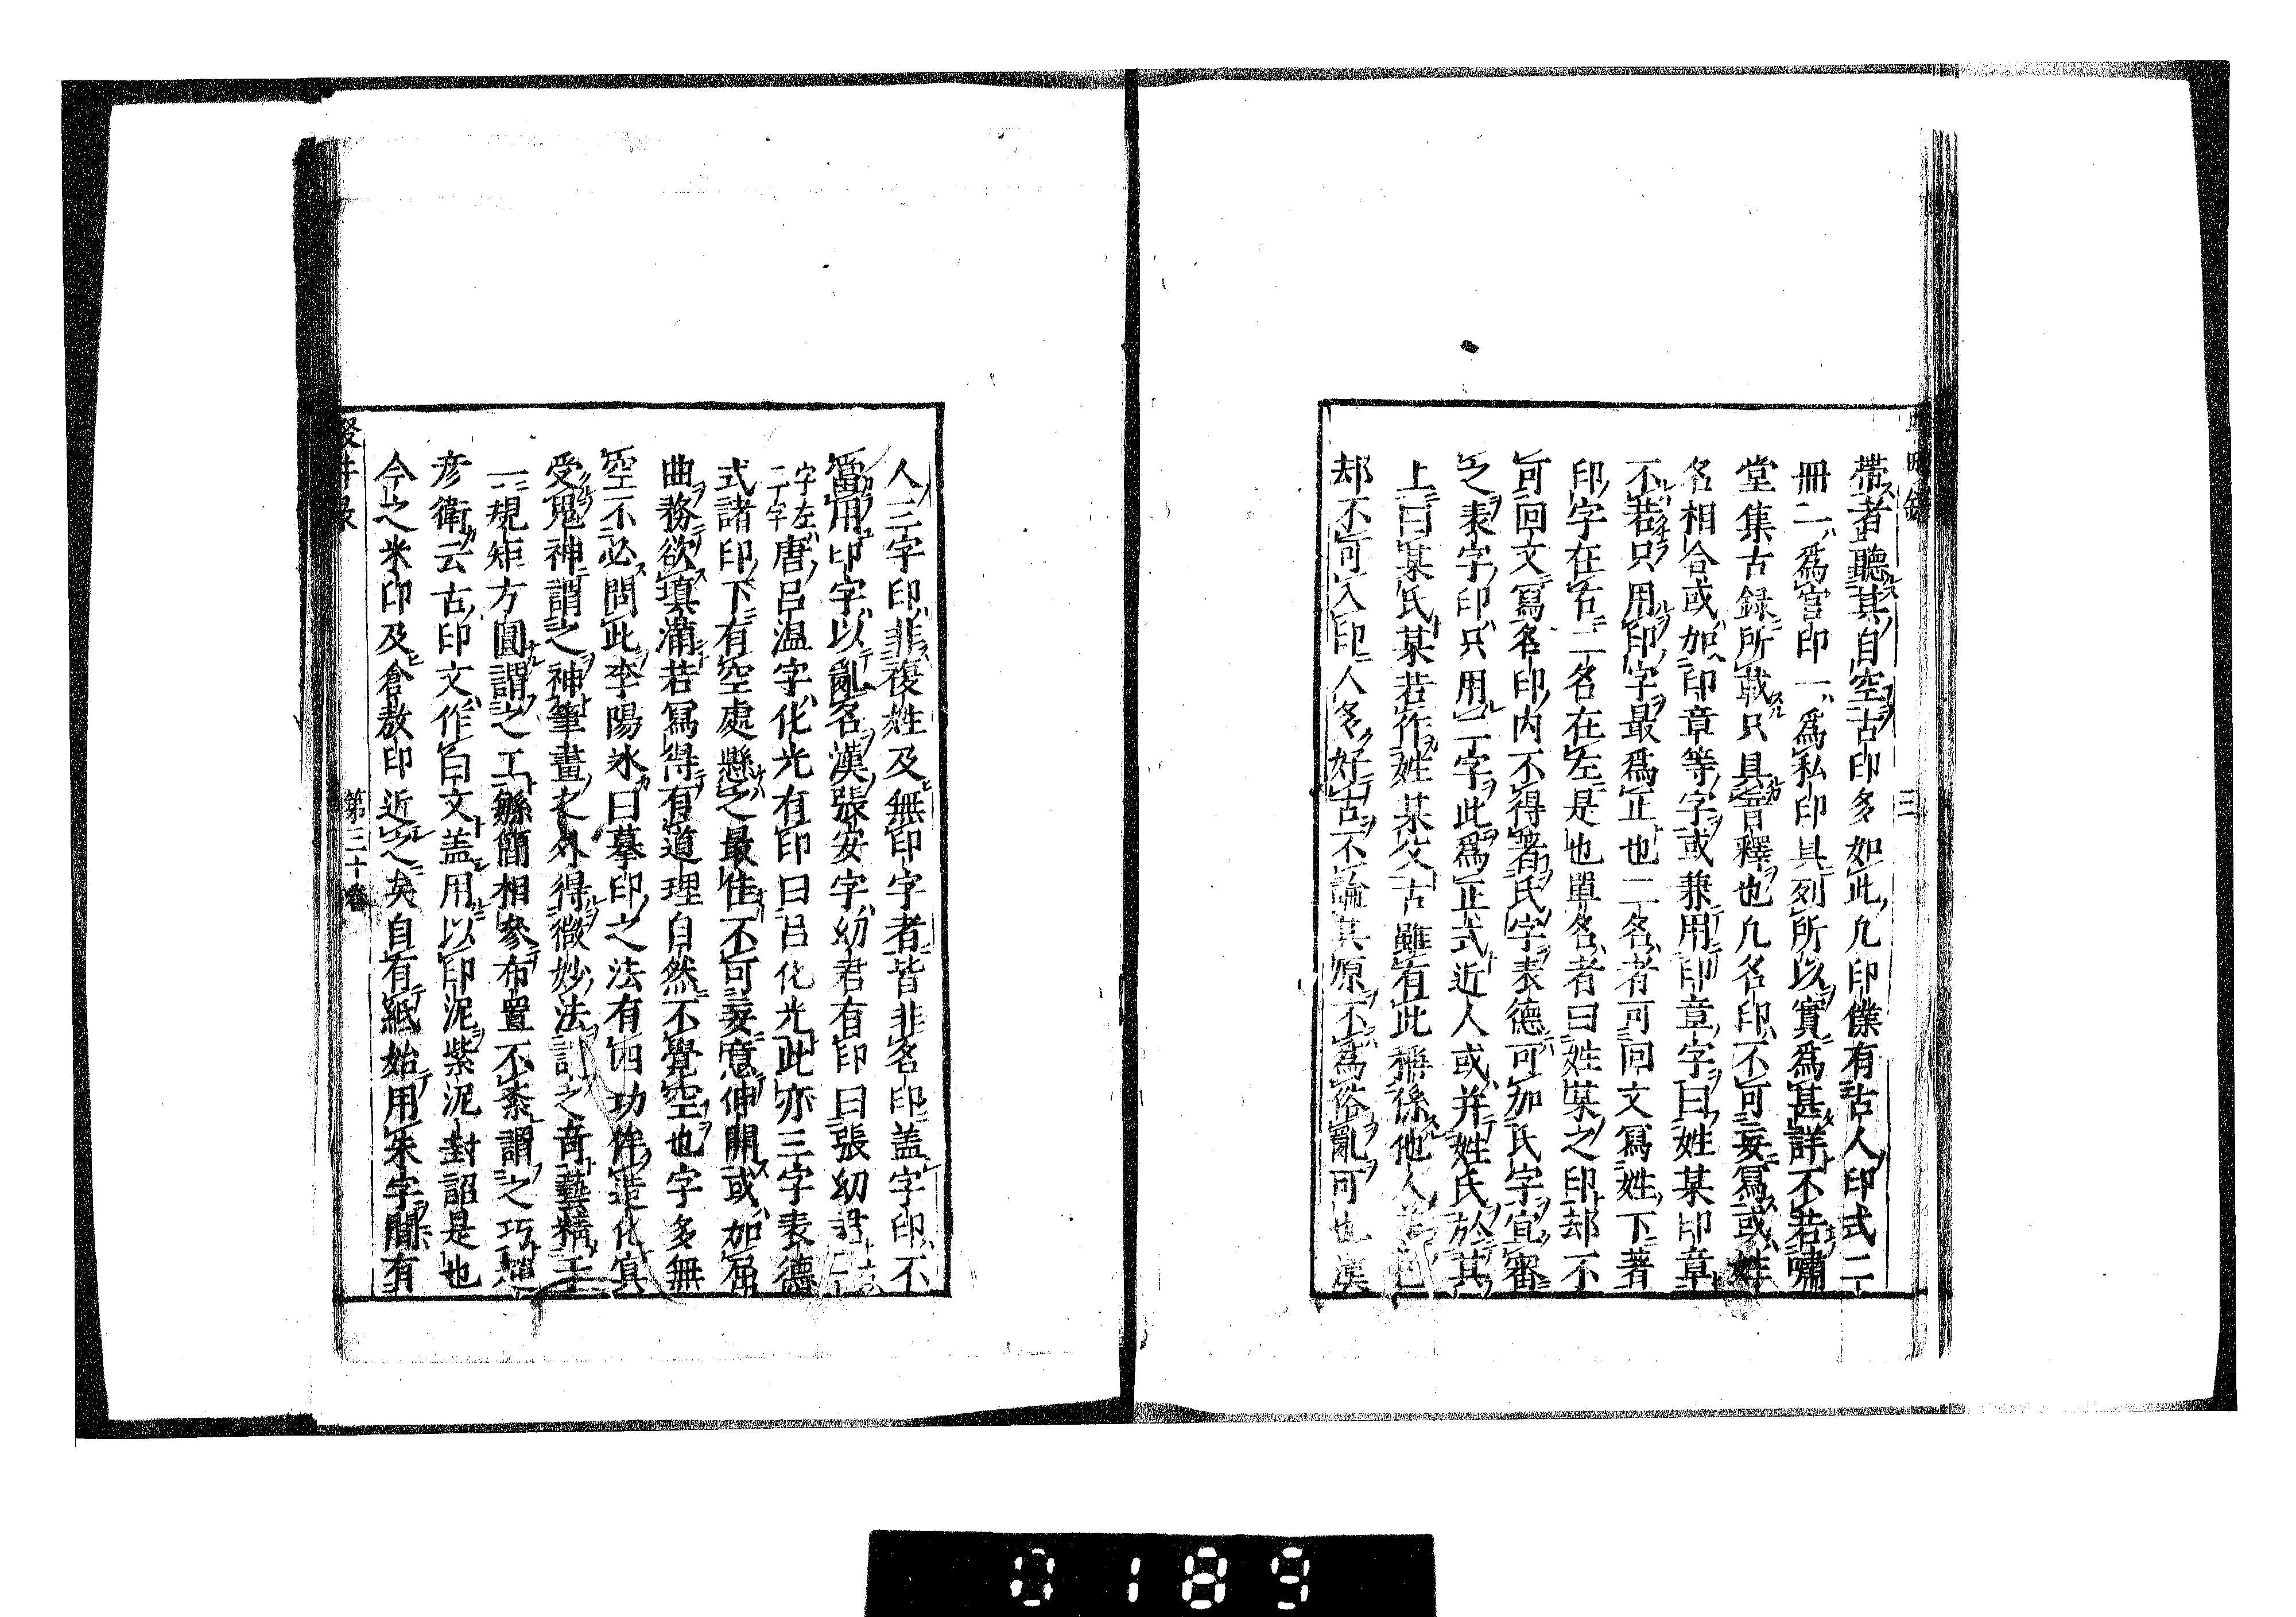 帶者聽其自空古印多如此凢印僕有古人印式二
冊二爲官印一爲私印具列所以實爲甚詳不若嘯
堂集古録所載只具音釋也凢名印不可妄寫或姓
名相合或加印章等字或兼用印章字曰姓某印章
不若只用印字最爲正也二名者可回文寫姓下著
印字在右二名在左是也單名者曰姓某之印却不
可回文寫名印内不得著氏字表德可加氏字宜審
之表字印只用二字此爲正式近人或并姓氏於其
上曰某氏某若作姓某父古雖有此稱係他人
却不可入印人多好古不論其原不爲俗亂可也漢
三
人三字印非復姓及無印字者皆非名印盖字印不
當用印字以亂名漢張安字幼君有印曰張幼君
字左
二字
唐呂温字化光有印曰呂化光此亦三字表德
式諸印下有空處懸之最佳不可妄意伸開或加屈
曲務欲填滿若寫得有道理自然不覺空也字多無
空不必問此李陽氷曰摹印之法有四功侔造化㝠
受鬼神謂之神筆畫之外得微妙法謂之竒藝精于
一規矩方圓謂之工繁簡相參布置不紊謂之巧趙
彦衛云古印文作白文盖用以印泥紫泥封詔是也
今之米印及倉敖印近之矣自有紙始用朱字間有
第三十卷
0189